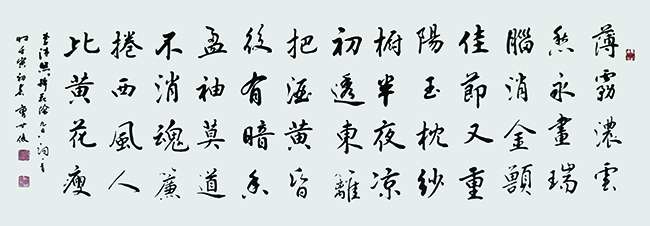 薄霧濃雲
愁永晝瑞
腦消金獸
佳節又重
陽玉枕紗
橱半夜凉
初透東離
把酒黃昏
後有暗香
盈袖莫道
不消魂簾
捲西風人
比黃花瘦
李清照醉花陰
壬寅初